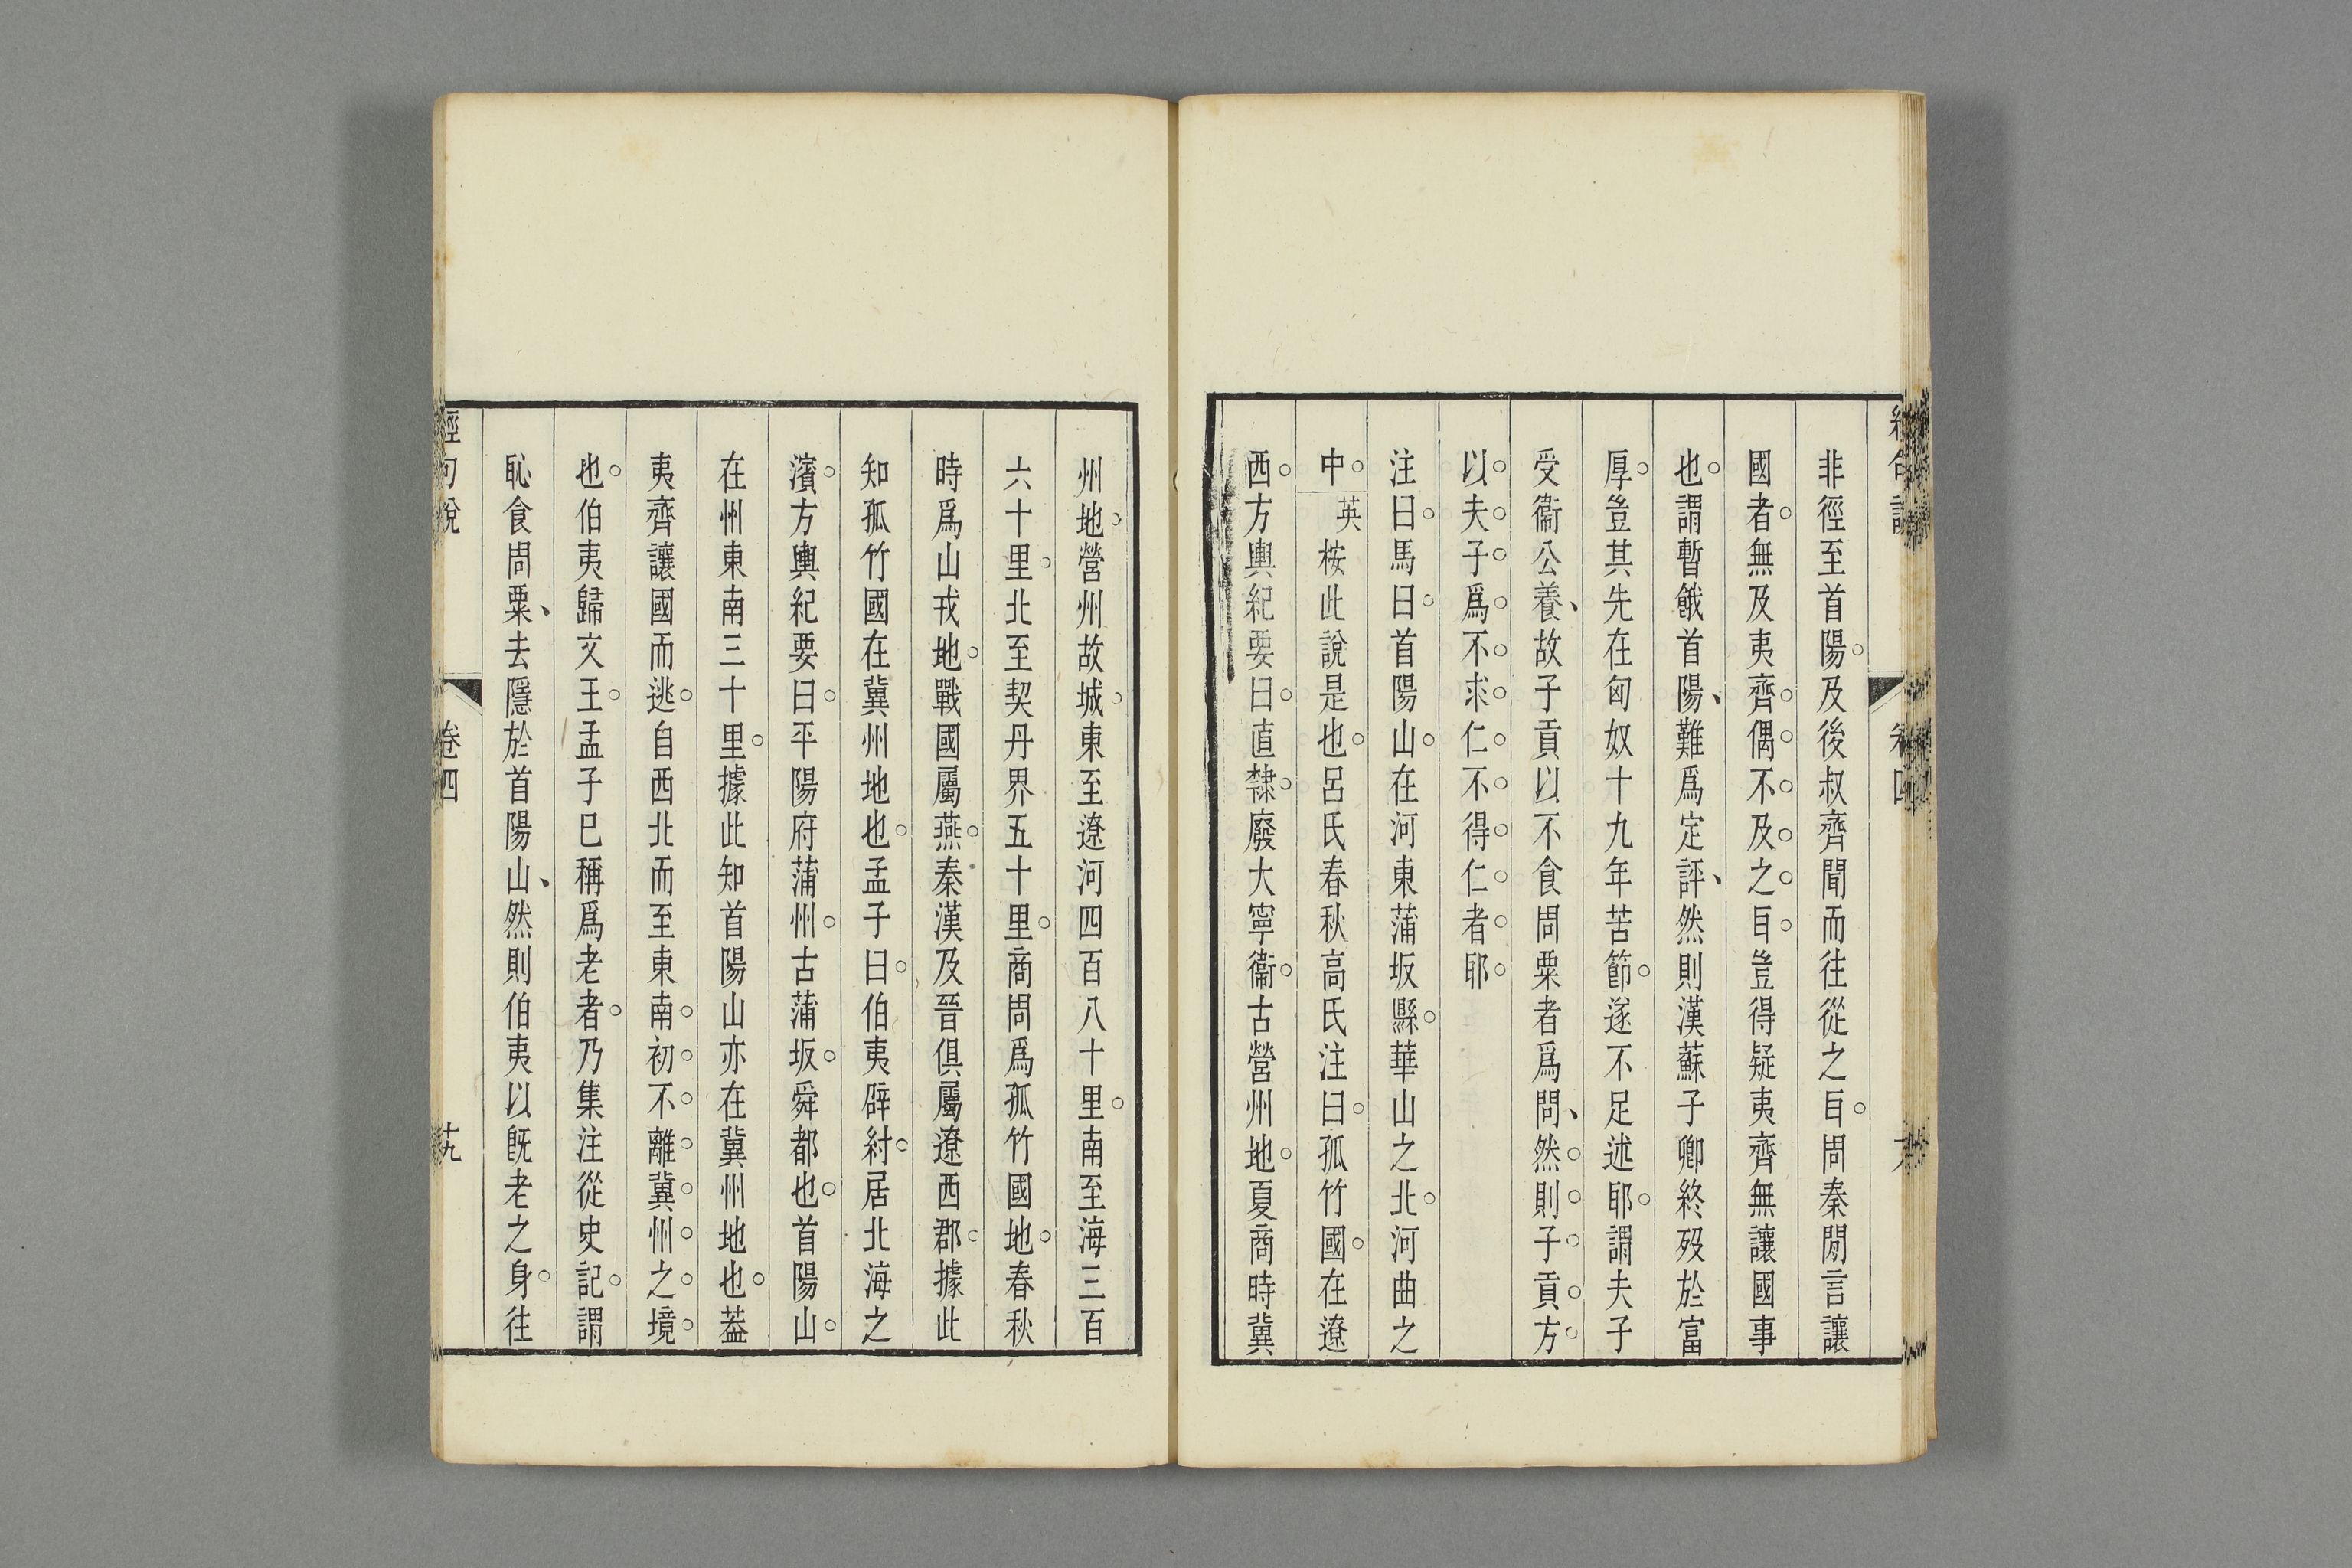 非徑至首陽及後叔齊聞而往從之㠯周秦閒言讓
國者無及夷齊偶不及之㠯豈得疑夷齊無讓國事
也謂暫餓首陽難爲定評然則漢蘇子卿終歿於富
厚豈其先在匈奴十九年苦節遂不足述耶謂夫子
受衞公養故子貢以不食周粟者爲問然則子貢方
以夫子爲不求仁不得仁者耶
注曰馬曰首陽山在河東蒲坂縣華山之北河曲之
中英桉此說是也呂氏春秋高氏注曰孤竹國在遼
西方輿紀要曰直隸廢大寧衞古營州地夏商時冀
州地營州故城東至遼河四百八十里南至海三百
六十里北至契丹界五十里商周爲孤竹國地春秋
時爲山戎地戰國屬燕秦漢及晉俱屬遼西郡據此
知孤竹國在冀州地也孟子曰伯夷辟紂居北海之
濱方輿紀要曰平陽府蒲州古蒲坂舜都也首陽山
在州東南三十里據此知首陽山亦在冀州地也葢
夷齊讓國而逃自西北而至東南初不離冀州之境
也伯夷歸文王孟子巳稱爲老者乃集注從史記謂
恥食周粟去隱於首陽山然則伯夷以旣老之身往
經句說
卷四
十九